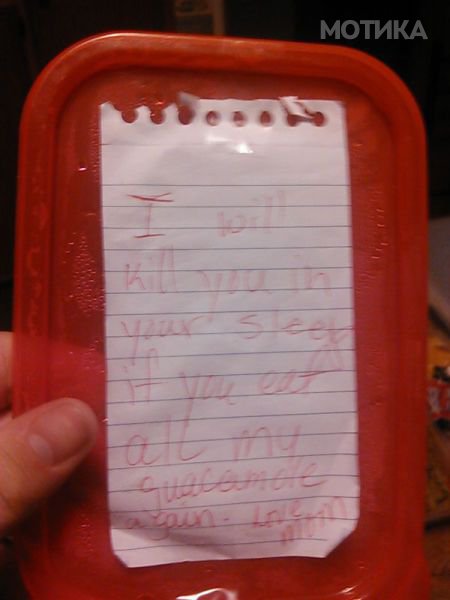 МОТИКА
I will
kill you in
your sleep
if you eat
all my
guacamole
again - Love
mom